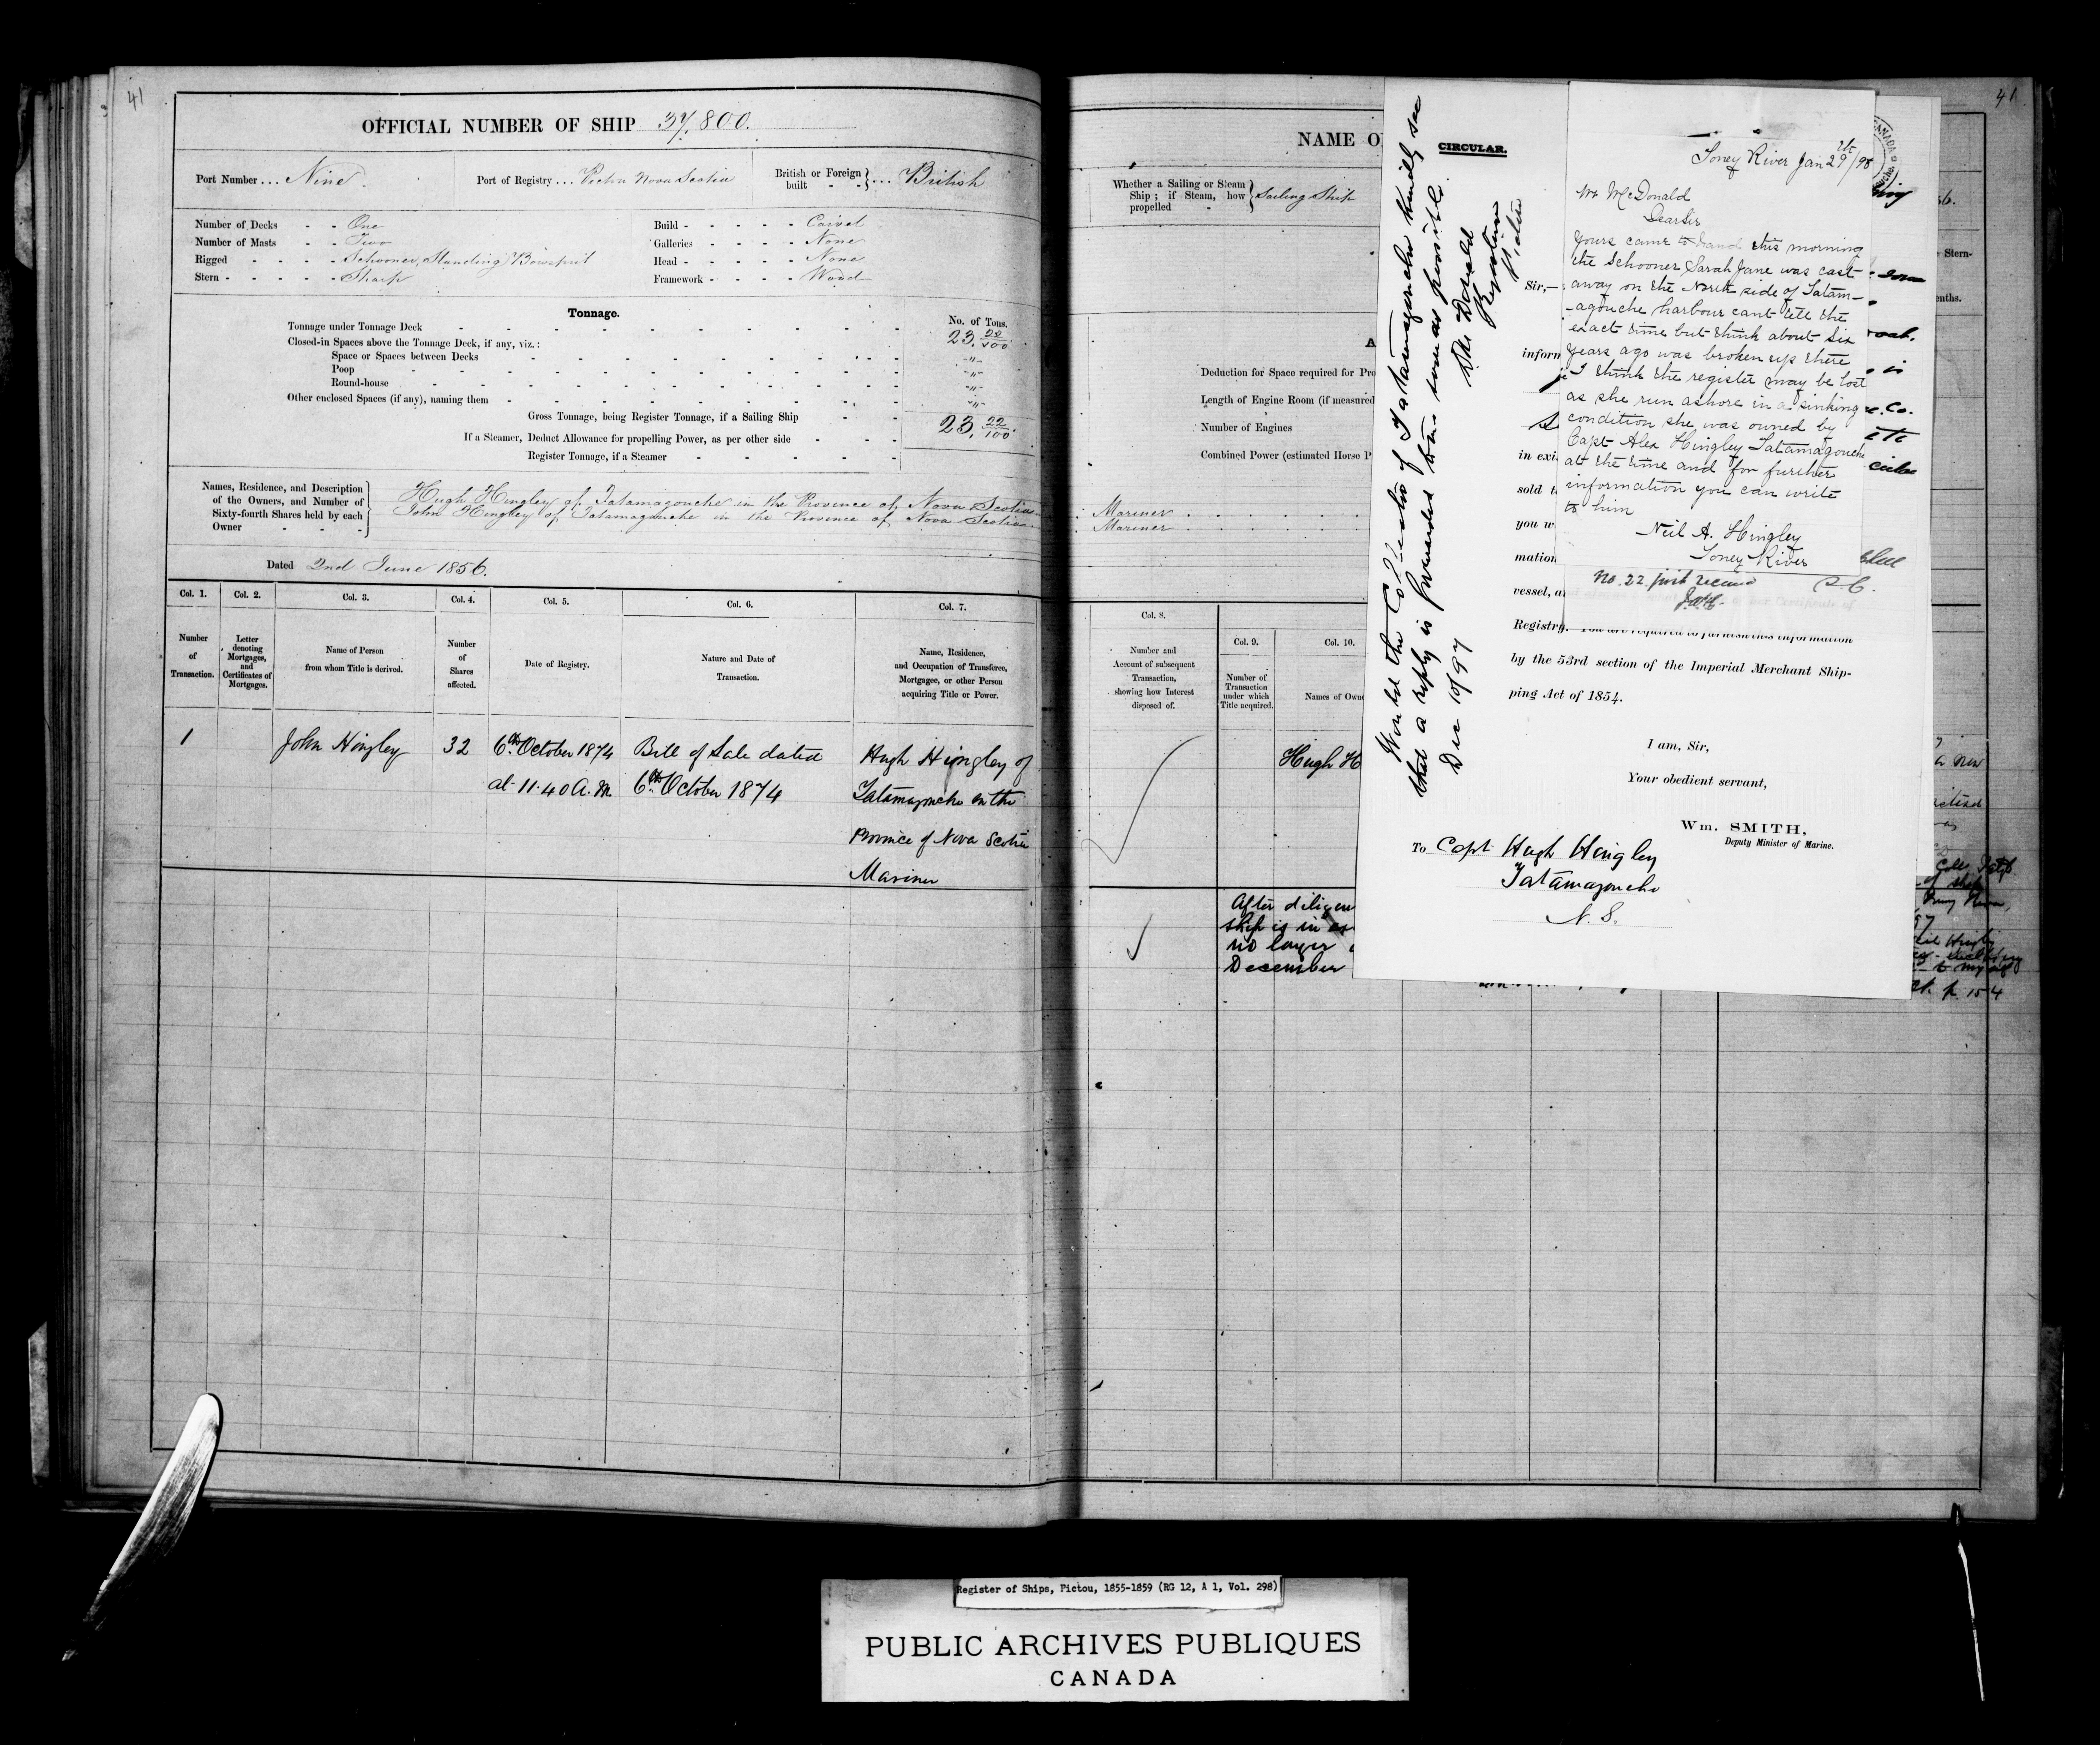 41
OFFICIAL NUMBER OF SHIP 37,800.
Port Number ... Nine.
Port of Registry ... Pictou Nova Scotia
British or Foreign built - - } ... British
Number of Decks - - One
Number of Masts - - Two
Rigged - - - - Schooner, Standing Bowsprit
Stern - - - - - Sharp
Build - - - - - Carvel
Galleries - - - - None
Head - - - - - None
Framework - - - - Wood
Tonnage.
No. of Tons.
Tonnage under Tonnage Deck 23. 22/100
Closed-in Spaces above the Tonnage Deck, if any, viz.:
Space or Spaces between Decks - "-
Poop - "-
Round-house - "-
Other enclosed Spaces (if any), naming them - "-
Gross Tonnage, being Register Tonnage, if a Sailing Ship 23. 22/100
If a Steamer, Deduct Allowance for propelling Power, as per other side
Register Tonnage, if a Steamer
Names, Residence, and Description
of the Owners, and Number of
Sixty-fourth Shares held by each
Owner
Hugh Hingley of Tatamagouche in the Province of Nova Scotia
John Hingley of Tatamagouche in the Province of Nova Scotia
Dated 2nd June 1856.
Col. 1.
Number
of
Transaction.
Col. 2.
Letter
denoting
Mortgages,
and
Certificates of
Mortgages.
Col. 3.
Name of Person
from whom Title is derived.
Col. 4.
Number
of
Shares
affected.
Col. 5.
Date of Registry.
Col. 6.
Nature and Date of
Transaction.
Col. 7.
Name, Residence,
and Occupation of Transferee,
Mortgagee, or other Person
acquiring Title or Power.
1
John Hingley
32
6th October 1874
at 11.40 A.M.
Bill of Sale dated
6th October 1874
Hugh Hingley of
Tatamagouche in the
Province of Nova Scotia
Mariner
41
NAME O
Whether a Sailing or Steam
Ship; if Steam, how
propelled - } Sailing Ship
Deduction for Space required for Pro
Length of Engine Room (if measured
Number of Engines
Combined Power (estimated Horse P
Mariner
Mariner
Col. 8.
Number and
Account of subsequent
Transaction,
showing how Interest
disposed of.
Col. 9.
Number of
Transaction
under which
Title acquired.
Col. 10.
Names of Own
Hugh H
After diligen
ship is in
no longer
December
Would the Collector of Tatamagouche kindly see
that a reply is forwarded to as soon as possible.
Dec 10/97
D McDonald
Registrar
Pictou
CIRCULAR.
Sir,—
inform
in exi
sold t
you w
mation
vessel, a
Registry. You are required to furnish this information
by the 53rd section of the Imperial Merchant Ship-
ping Act of 1854.
I am, Sir,
Your obedient servant,
Wm. SMITH,
Deputy Minister of Marine.
To Capt Hugh Hingley
Tatamagouche
N. S.
Toney River Jan 29th/98
Mr McDonald
Dear Sir
Yours came to hand this morning
the schooner Sarah Jane was cast
away on the North side of Tatam-
-agouche harbour cant tell the
exact time but think about six
years ago was broken up there
I think the register may be lost
as she run ashore in a sinking
condition she was owned by
Capt Alex Hingley Tatamagouche
at the time and for further
information you can write
to him
Neil A. Hingley
Toney River
P.C.
Stern-
p. 154
Register of Ships, Pictou, 1855-1859 (RG 12, A 1, Vol. 298)
PUBLIC ARCHIVES PUBLIQUES
CANADA